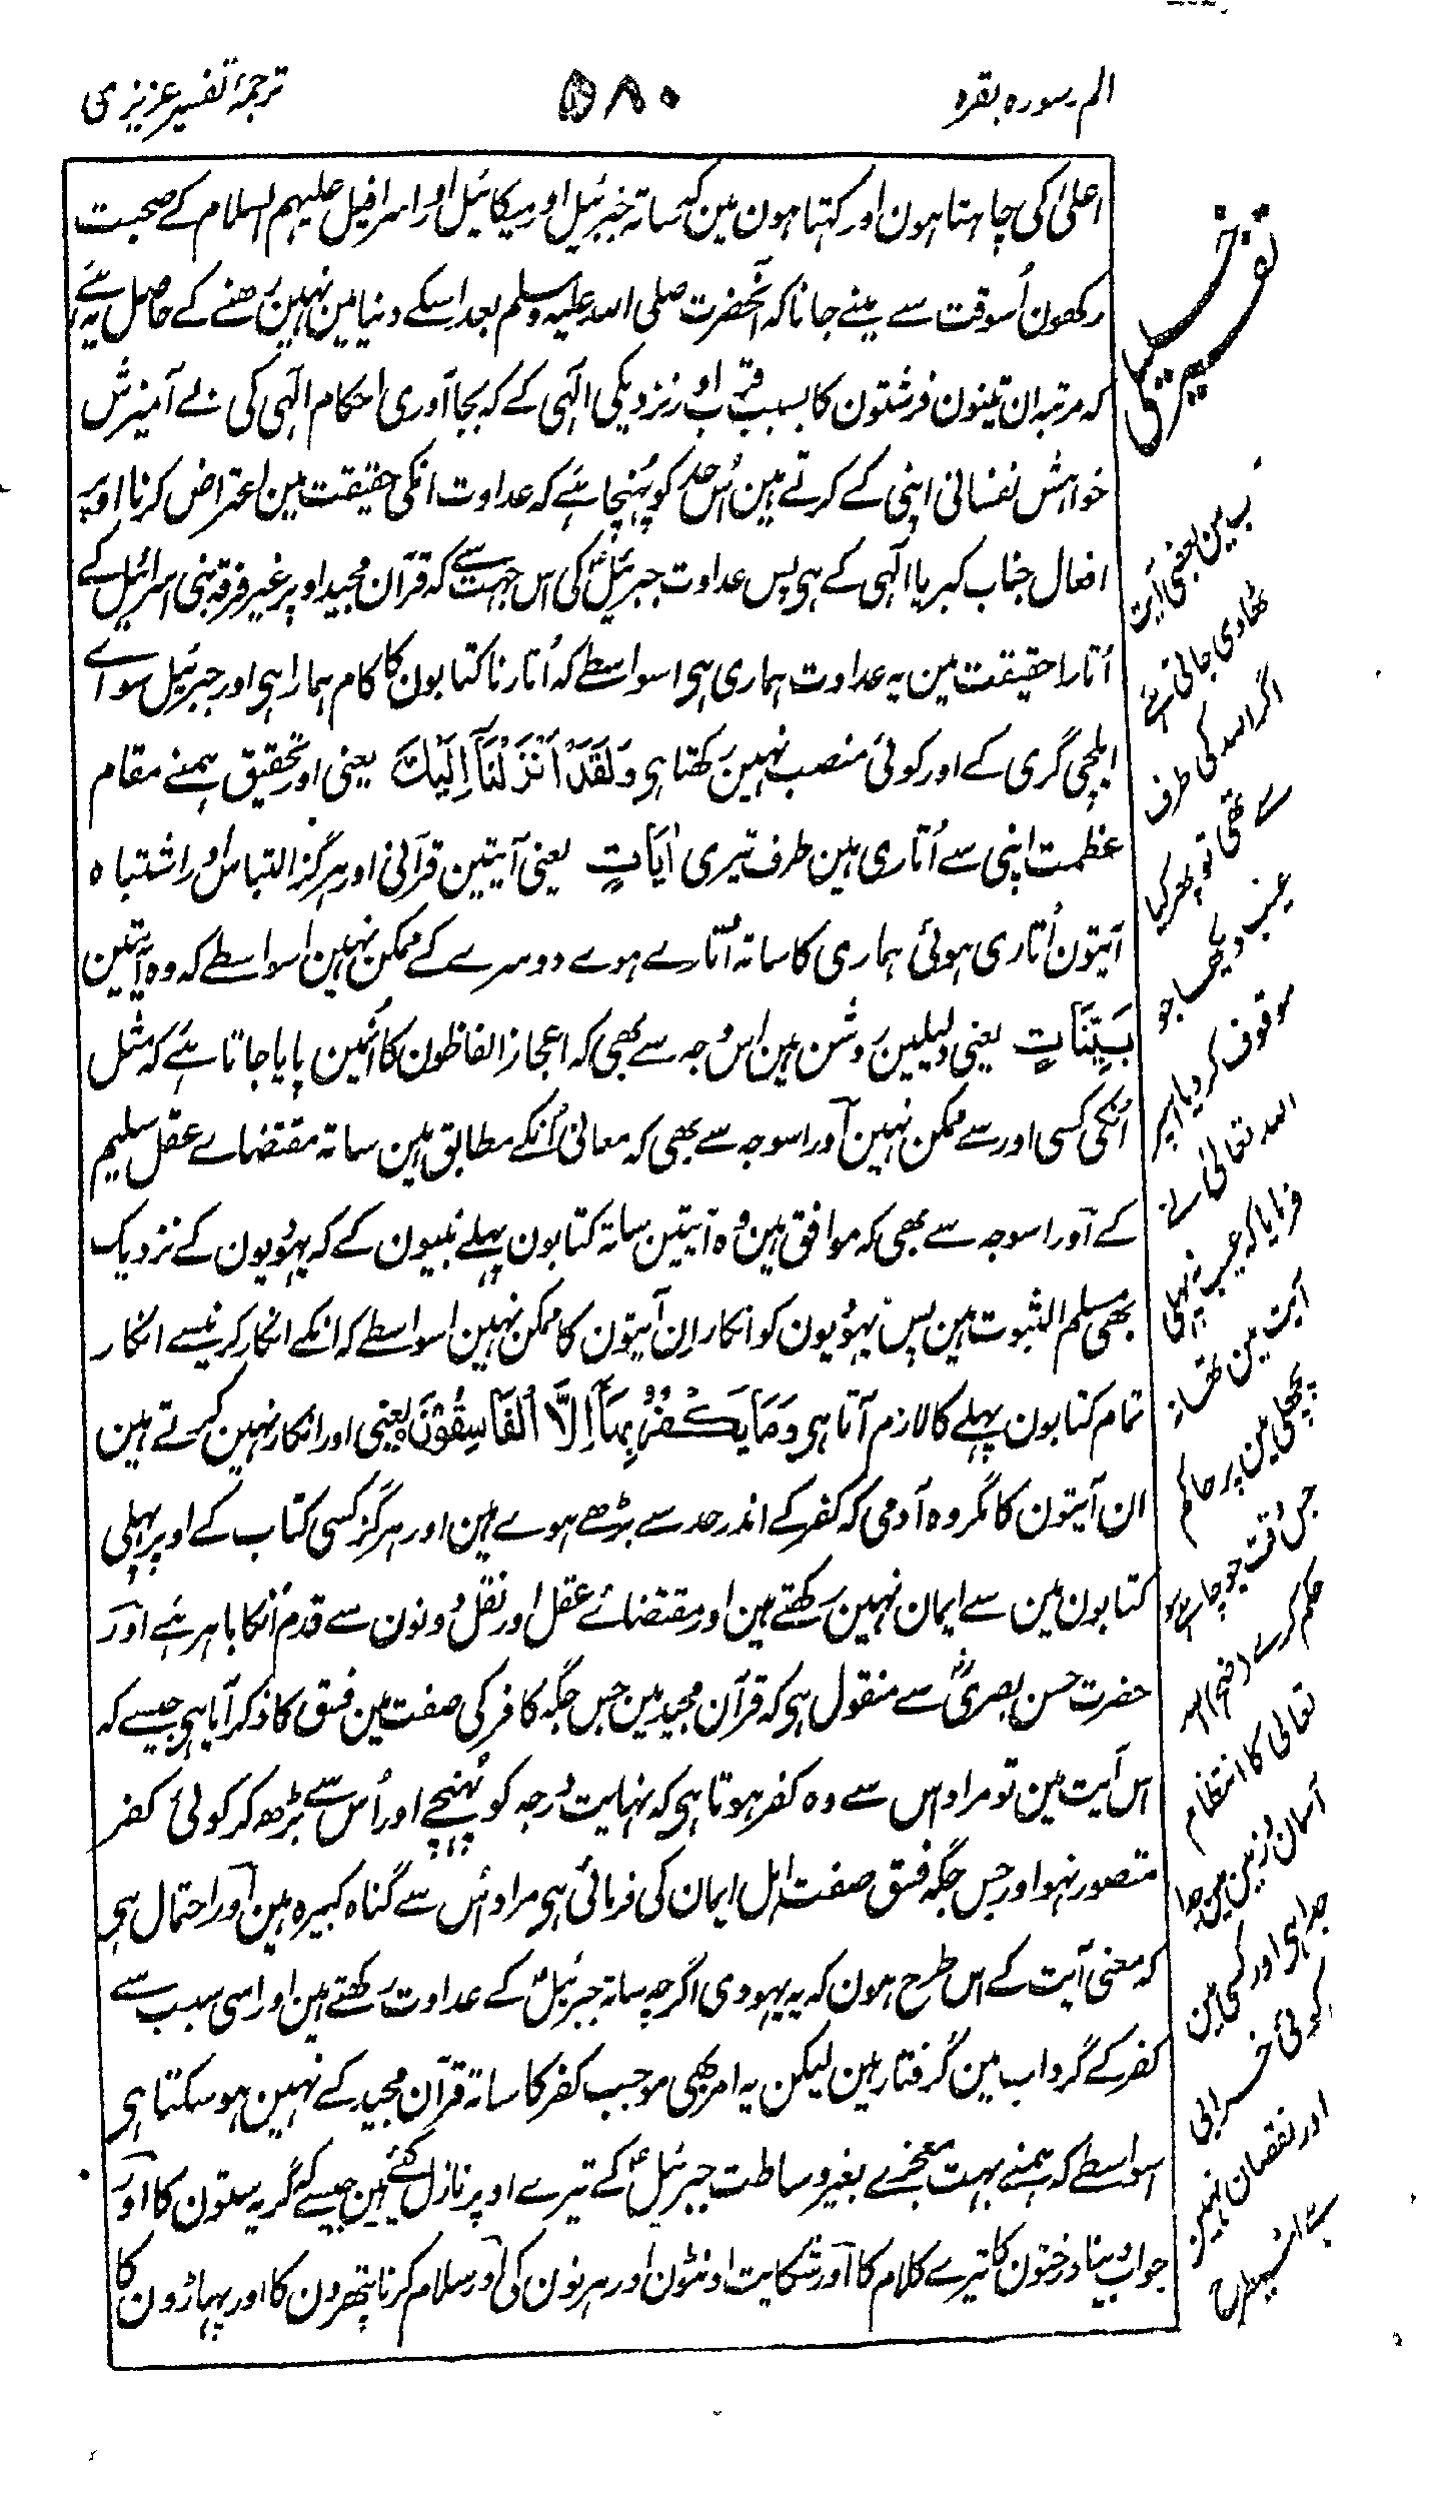 الم سورہ بقرہ
۵۸۰
ترجمۂ تفسیر عزیزی
اعلیٰ کی چاہتا ہون اور کہتا ہون مین کہ ساتہ جبرئیل اور میکائیل اور اسرافیل علیہم السلام کے صحبت
رکھون اُسوقت سے مینے جانا کہ آنحضرت صلی اللہ علیہ وسلم بعد اسکے دنیا مین نہین رہنے کے حاصل یہ ہے
کہ مرتبہ ان تینون فرشتون کا بسبب قرب اور نزدیکی الٰہی کے کہ بجا آوری احکام الٰہی کی بے آمیزش
خواہش نفسانی اپنی کے کرتے ہین اُس حد کو پُہنچا ہئے کہ عداوت انکی حقیقت مین اعتراض کرنا اوپر
افعال جناب کبریا الٰہی کے ہی پس عداوت جبرئیلؑ کی اس جہت سے کہ قرآن مجید اوپر غیر فرقہ بنی اسرائیل کے
اُتارا حقیقت مین یہ عداوت ہماری ہی اسواسطے کہ اُتارنا کتابون کا کام ہمارا ہی اور جبرئیل سواے
ایلچی گری کے اور کوئی منصب نہین رکھتا ہی وَلَقَدْ اَنْزَلْنَآ اِلَیْكَ یعنی اور تحقیق ہمنے مقام
عظمت اپنی سے اُتاری ہین طرف تیری اٰیَاتٍ یعنی آیتین قرآنی اور ہرگز التباس اور اشتباہ
آیتون اُتاری ہوئی ہماری کا ساتہ اُتارے ہوے دوسرے کے ممکن نہین اسواسطے کہ وہ آیتین
بَیِّنَاتٍ یعنی دلیلین روشن ہین اس وجہ سے بھی کہ اعجاز الفاظون کا اُنمین پایا جاتا ہئے کہ مثل
اُنکی کسی اور سے ممکن نہین اور اسوجہ سے بھی کہ معانی اُنکے مطابق ہین ساتہ مقتضاے عقل سلیم
کے اور اسوجہ سے بھی کہ موافق ہین وہ آیتین ساتہ کتابون پہلے نبیون کے کہ یہودیون کے نزدیک
بھی مسلم الثبوت ہین پس یہودیون کو انکار ان آیتون کا ممکن نہین اسواسطے کہ انکے انکار کرنیسے انکار
تمام کتابون پہلے کا لازم آتا ہی وَمَا یَكْفُرُ بِهَآ اِلَّا الْفَاسِقُوْنَ یعنی اور انکار نہین کرتے ہین
ان آیتون کا مگر وہ آدمی کہ کفر کے اندر حد سے بڑھے ہوے ہین اور ہرگز کسی کتاب کے اوپر پہلی
کتابون مین سے ایمان نہین رکھتے ہین اور مقتضاے عقل اور نقل دونون سے قدم اُنکا باہر ہئے اور
حضرت حسن بصریؒ سے منقول ہی کہ قرآن مجید مین جس جگہ کافر کی صفت مین فسق کا ذکر آیا ہی جیسے کہ
اس آیت مین تو مراد اس سے وہ کفر ہوتا ہی کہ نہایت درجہ کو پُہنچے اور اُس سے بڑھ کر کوئی کفر
متصور نہو اور جس جگہ فسق صفت اہل ایمان کی فرمائی ہی مراد اس سے گناہ کبیرہ ہین اور احتمال ہی
کہ معنی آیت کے اس طرح ہون کہ یہ یہودی اگرچہ ساتہ جبرئیلؑ کے عداوت رکھتے ہین اور اسی سبب سے
کفر کے گرداب مین گرفتار ہین لیکن یہ امر بھی موجب کفر کا ساتہ قرآن مجید کے نہین ہو سکتا ہی
اسواسطے کہ ہمنے بہت معجزے بغیر وساطت جبرئیلؑ کے تیرے اوپر نازل کئے ہین جیسے کہ گریہ ستون کا اور
جواب دینا درختون کا تیرے کلام کا اور شکایت اونٹون اور ہرنون کی اور سلام کرنا پتھرون کا اور پہاڑون کا
ب مین بعضی آیت
اگر اللہ کی طرف
سے تھی تو پھر کیا
عیب دیکھا جو
موقوف کر دیا اسپر
اللہ تعالیٰ نے
فرمایا کہ عیب نہ پہلی
آیت مین تھا نہ
پچھلی مین پر حاکم
جس وقت جو چاہے
حکم کرے
تعالی کا انتظام
آسمان و زمین مین
جدا ہی اور کسی مین
کوئی خرابی
اور نقصان نہین